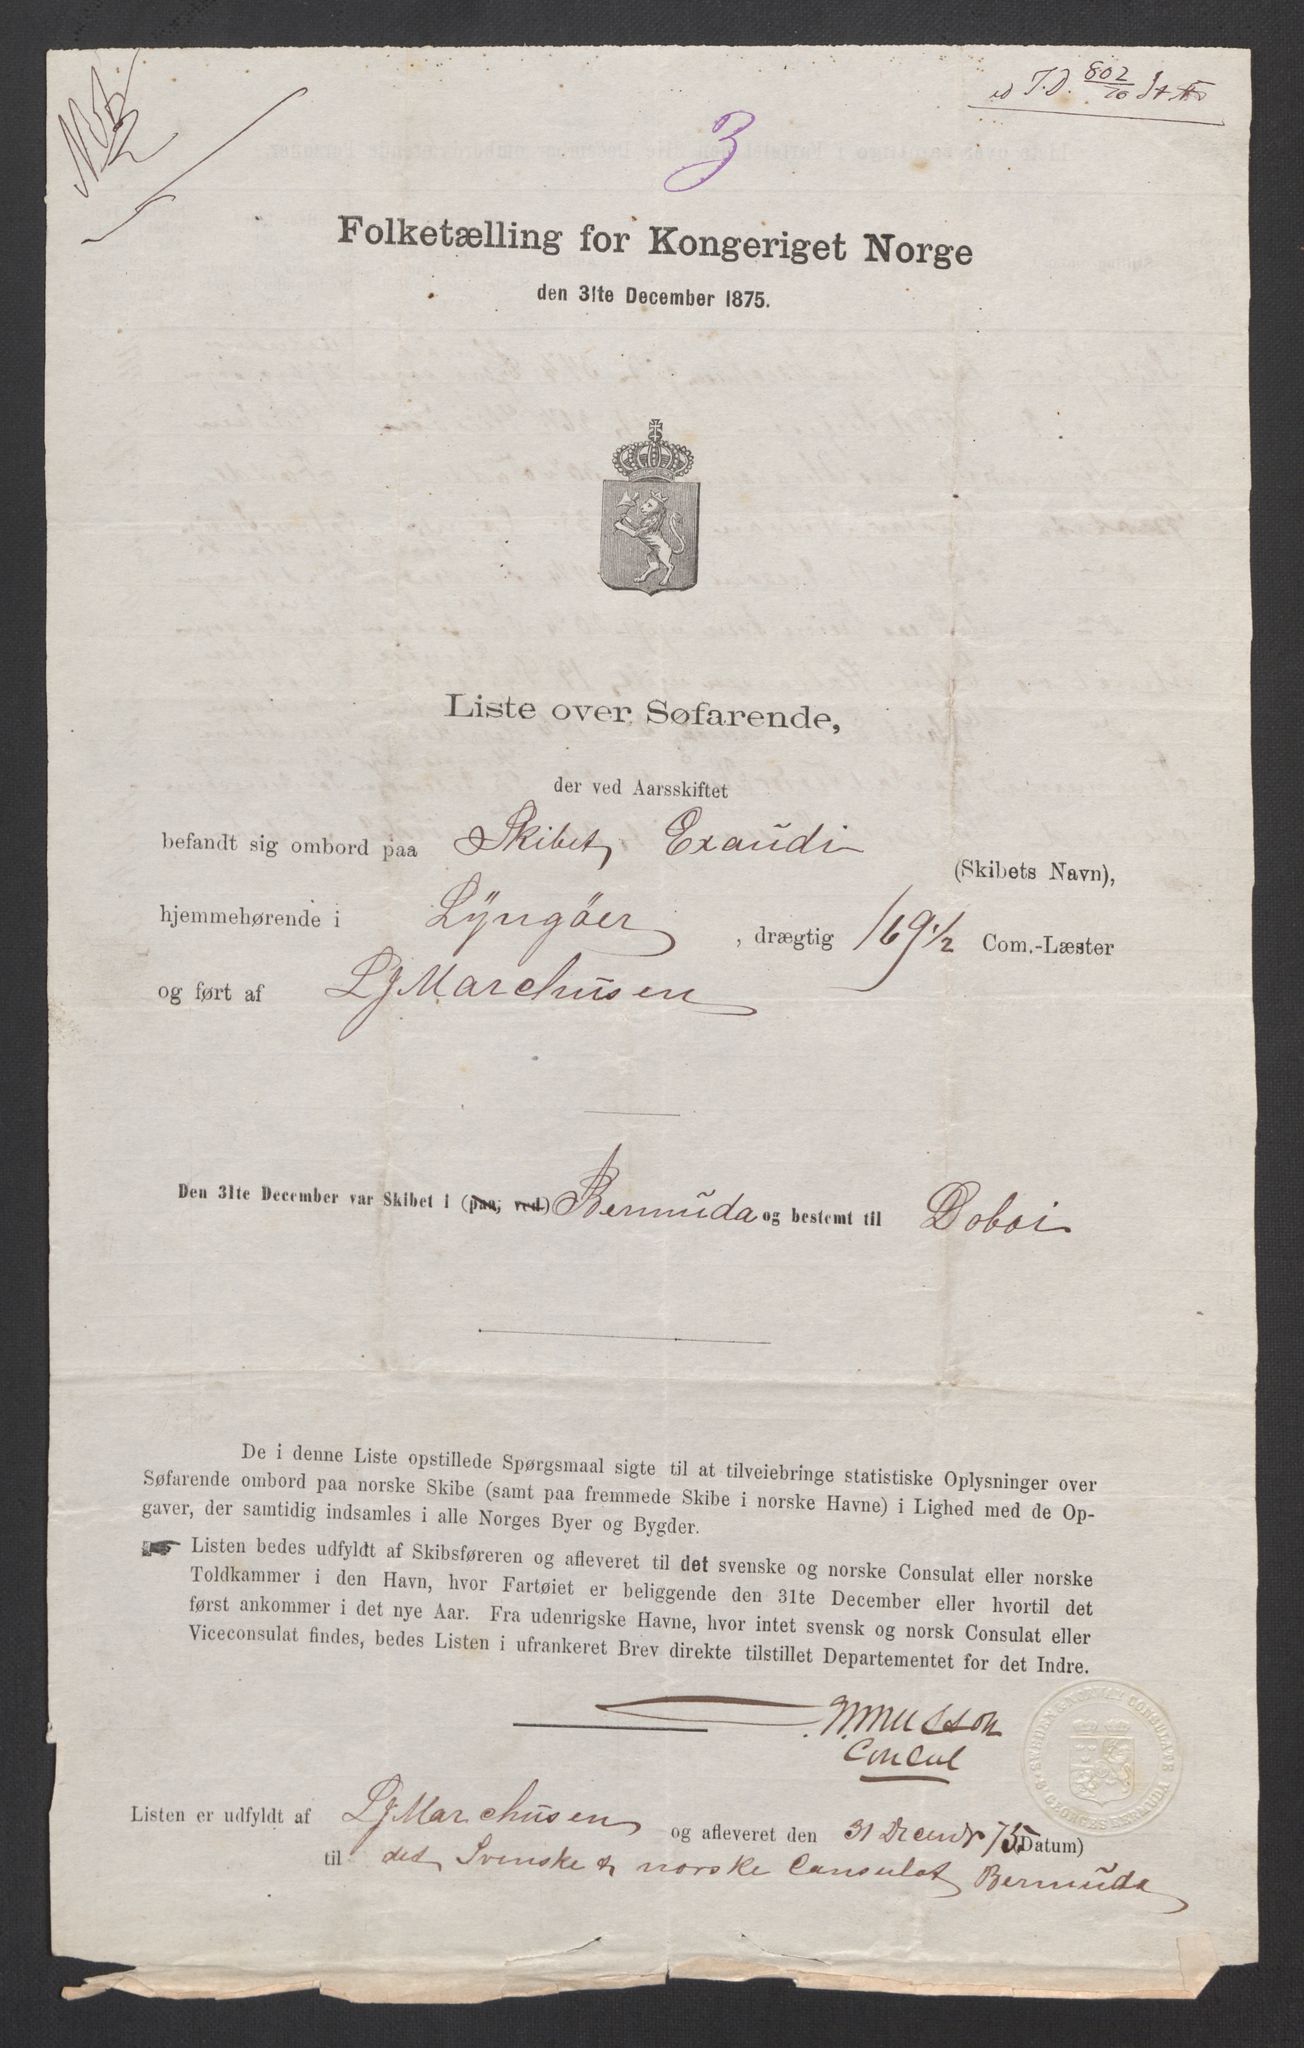 No 2
T.D. 802/16
3
Folketælling for Kongeriget Norge
den 31te December 1875.
Liste over Søfarende,
der ved Aarsskiftet
befandt sig ombord paa Skibet Exaudi (Skibets Navn),
hjemmehørende i Lÿngöer, drægtig 169 1/2 Com.-Læster
og ført af LJMarchusen
Den 31te December var Skibet i (paa, ved) Bermuda og bestemt til Doboi
De i denne Liste opstillede Spørgsmaal sigte til at tilveiebringe statistiske Oplysninger over
Søfarende ombord paa norske Skibe (samt paa fremmede Skibe i norske Havne) i Lighed med de Op-
gaver, der samtidig indsamles i alle Norges Byer og Bygder.
Listen bedes udfyldt af Skibsføreren og afleveret til det svenske og norske Consulat eller norske
Toldkammer i den Havn, hvor Fartøiet er beliggende den 31te December eller hvortil det
først ankommer i det nye Aar. Fra udenrigske Havne, hvor intet svensk og norsk Consulat eller
Viceconsulat findes, bedes Listen i ufrankeret Brev direkte tilstillet Departementet for det Indre.
Musson
Consul
SWEDEN & NORWAY CONSULATE
ST GEORGES BERMUDA
Listen er udfyldt af LJMarchusen og afleveret den 31 Decembr 75 (Datum)
til det Svenske & norske Consulat Bermuda